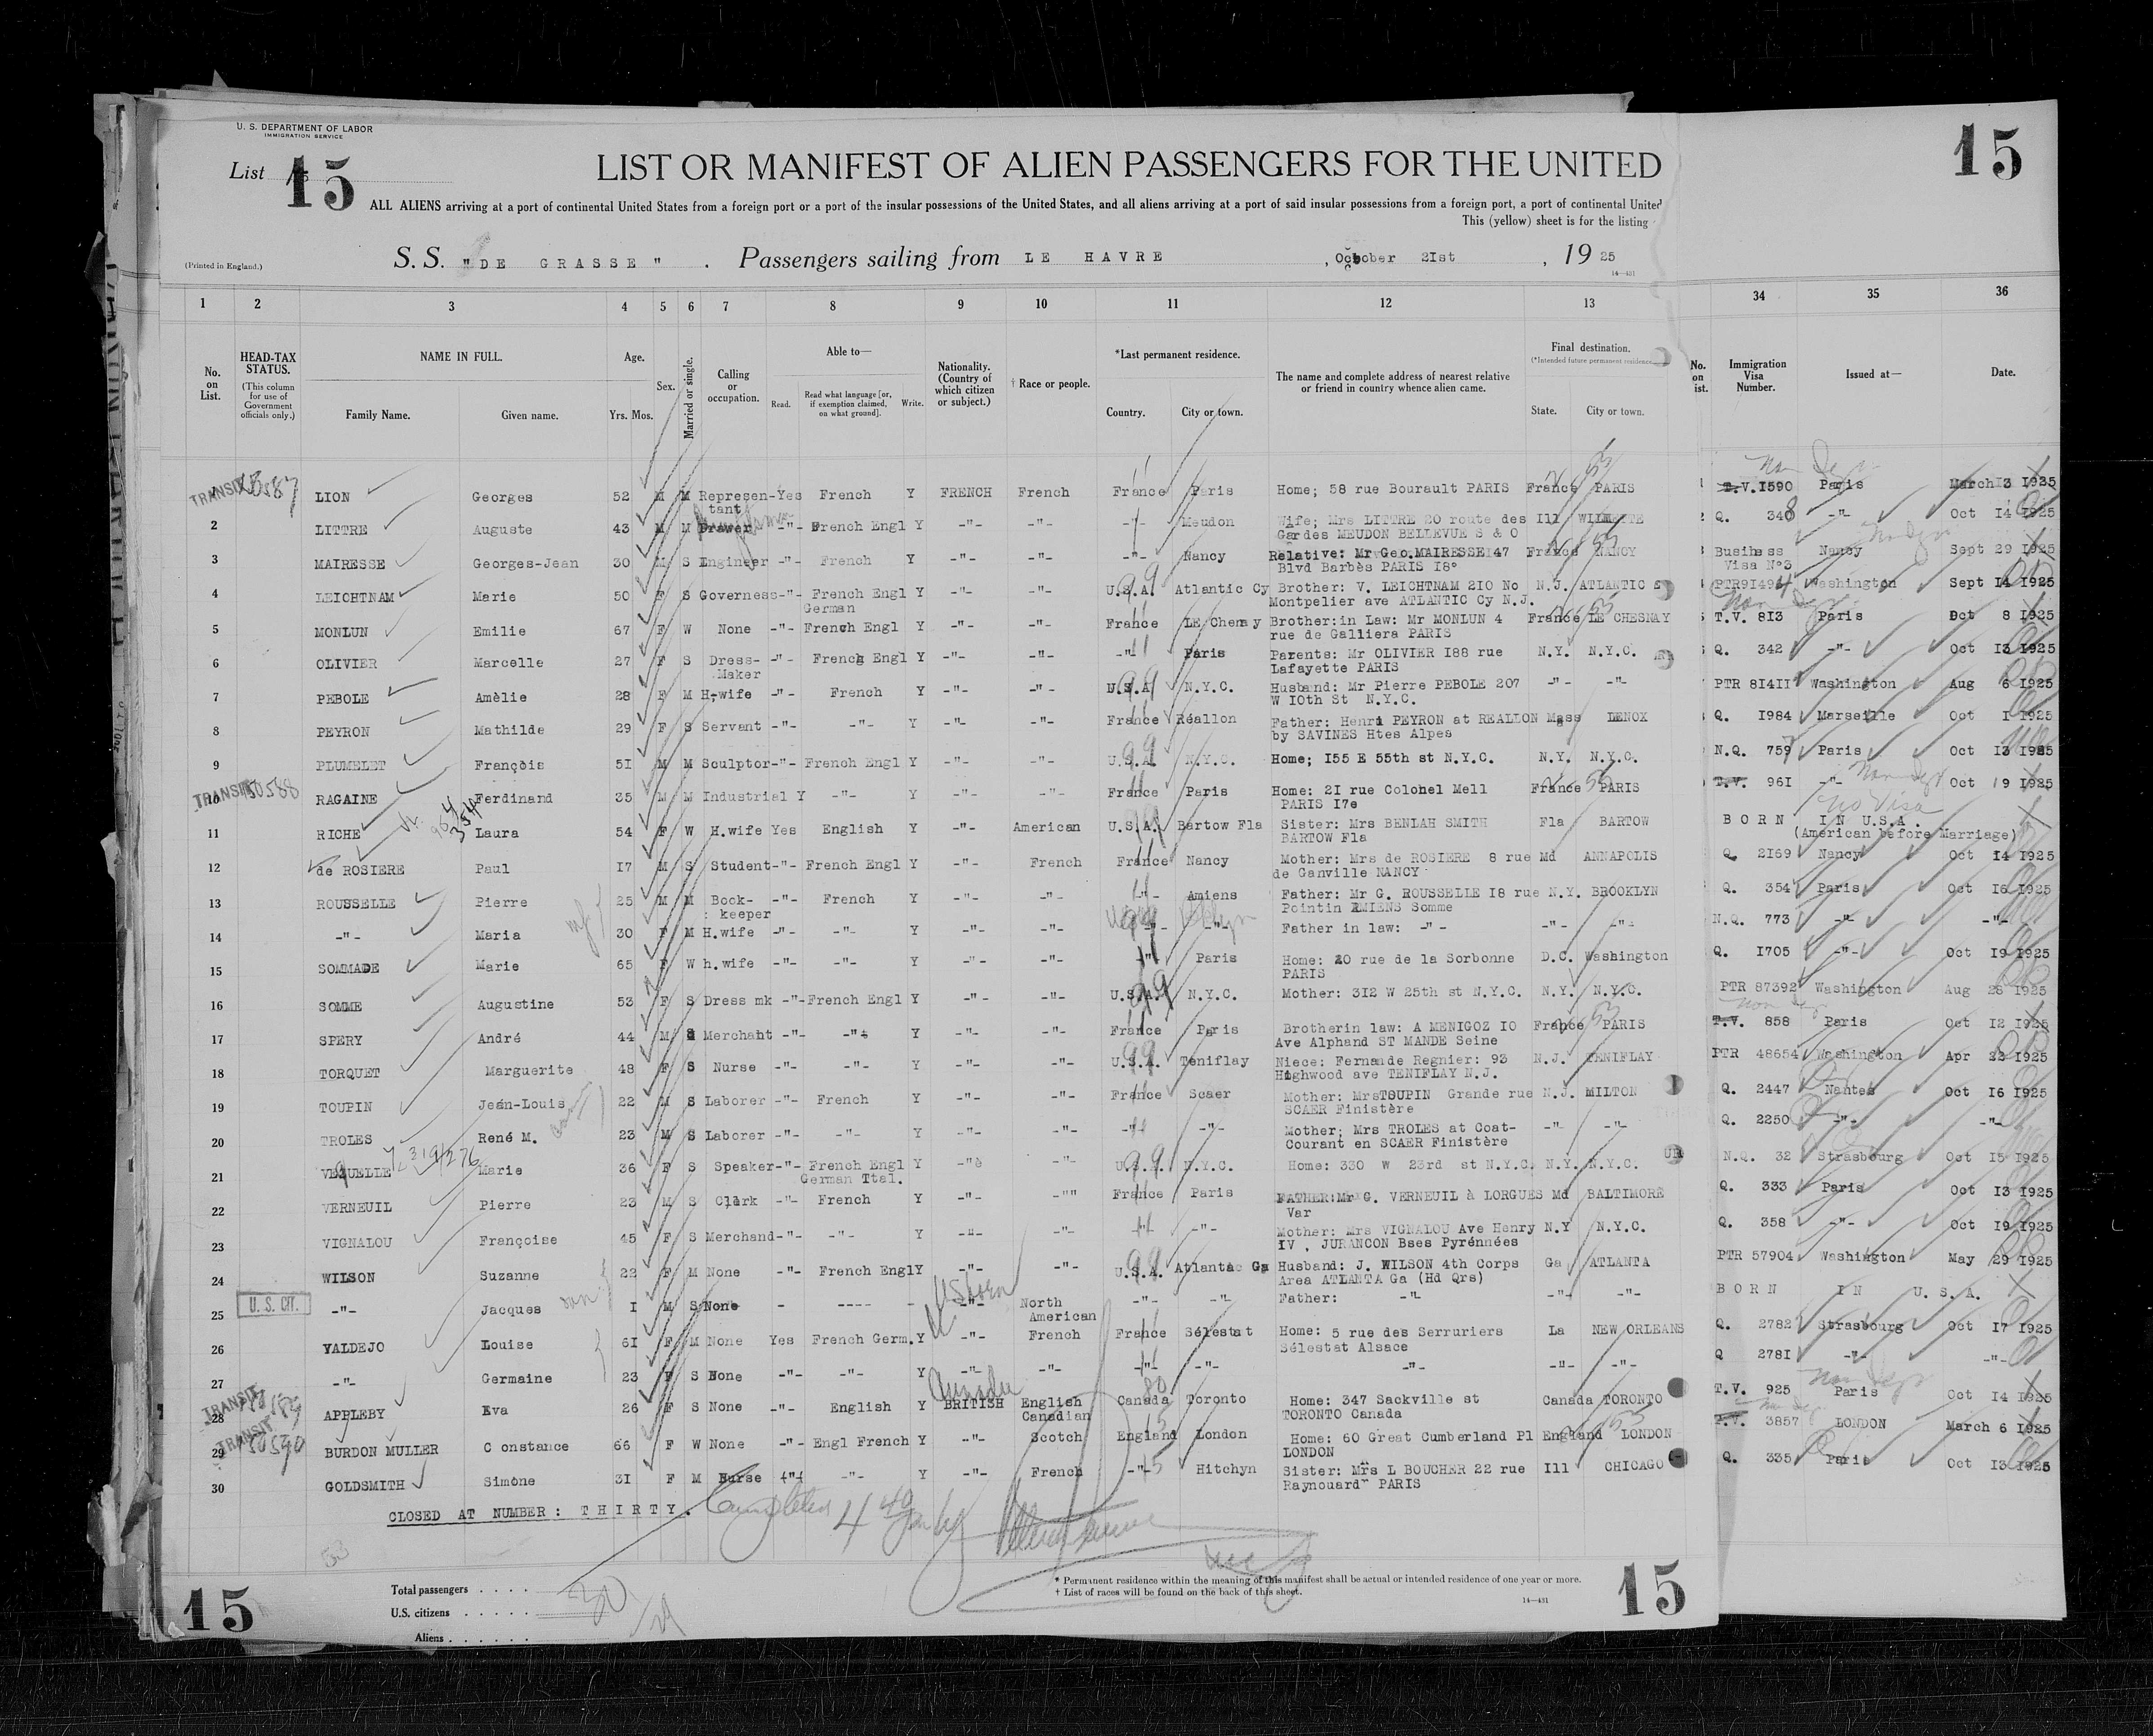 U. S. DEPARTMENT OF LABOR
IMMIGRATION SERVICE
List 15
15
LIST OR MANIFEST OF ALIEN PASSENGERS FOR THE UNITED
ALL ALIENS arriving at a port of continental United States from a foreign port or a port of the insular possessions of the United States, and all aliens arriving at a port of said insular possessions from a foreign port, a port of continental United
This (yellow) sheet is for the listing
(Printed in England.)
S. S. "DE GRASSE" . Passengers sailing from LE HAVRE , October 2Ist , 19 25
14—431
1 2 3 4 5 6 7 8 9 10 11 12 13 34 35 36
No. on List. HEAD-TAX STATUS. (This column for use of Government officials only.) NAME IN FULL. Family Name. Given name. Age. Yrs. Mos. Sex. Married or single. Calling or occupation. Able to— Read. Read what language [or, if exemption claimed, on what ground]. Write. Nationality. (Country of which citizen or subject.) † Race or people. *Last permanent residence. Country. City or town. The name and complete address of nearest relative or friend in country whence alien came. Final destination. (*Intended future permanent residence State. City or town. No. on ist. Immigration Visa Number. Issued at— Date.
TRANSIT LION Georges 52 M M Represen- Yes French Y FRENCH French France Paris Home; 58 rue Bourault PARIS France PARIS T.V. I590 Paris March I3 I925
tant
2 LITTRE Auguste 43 M M Drawer -"- French Engl Y -"- -"- -"- Meudon Wife; Mrs LITTRE 20 route des Ill WILMETTE 2 Q. 348 -"- Oct I4 I925
Gardes MEUDON BELLEVUE S & O
3 MAIRESSE Georges-Jean 30 M S Engineer -"- French Y -"- -"- -"- Nancy Relative: Mr Geo.MAIRESSE 47 France NANCY Business Nancy Sept 29 I925
Blvd Barbès PARIS I8° Visa N°3
4 LEICHTNAM Marie 50 F S Governess -"- French Engl Y -"- -"- U.S.A. Atlantic Cy Brother: V. LEICHTNAM 2I0 No N.J. ATLANTIC PTR9I494 Washington Sept I4 I925
German Montpelier ave ATLANTIC Cy N.J.
5 MONLUN Emilie 67 F W None -"- French Engl Y -"- -"- France LE Chenay Brother:in Law: Mr MONLUN 4 France LE CHESNAY T.V. 8I3 Paris Oct 8 I925
rue de Galliera PARIS
6 OLIVIER Marcelle 27 F S Dress- -"- French Engl Y -"- -"- -"- Paris Parents: Mr OLIVIER I88 rue N.Y. N.Y.C. Q. 342 -"- Oct I3 I925
Maker Lafayette PARIS
7 PEBOLE Amèlie 28 F M H,wife -"- French Y -"- -"- U.S.A N.Y.C. Husband: Mr Pierre PEBOLE 207 -"- -"- PTR 8I4II Washington Aug 6 I925
W IOth St N.Y.C.
8 PEYRON Mathilde 29 F S Servant -"- -"- Y -"- -"- France Réallon Father: Henri PEYRON at REALLON Mass LENOX Q. I984 Marseille Oct I I925
by SAVINES Htes Alpes
9 PLUMELET Françôis 5I M M Sculptor -"- French Engl Y -"- -"- U.S.A. N.Y.C. Home; I55 E 55th st N.Y.C. N.Y. N.Y.C. N.Q. 759 Paris Oct I3 I925
TRANSIT 10 RAGAINE Ferdinand 35 M M Industrial Y -"- Y -"- -"- France Paris Home: 2I rue Colonel Mell France PARIS T.V. 96I -"- Oct I9 I925
PARIS I7e No Visa
11 RICHE Laura 54 F W H.wife Yes English Y -"- American U.S.A. Bartow Fla Sister: Mrs BENLAH SMITH Fla BARTOW BORN IN U.S.A.
BARTOW Fla (American before Marriage)
12 de ROSIERE Paul I7 M S Student -"- French Engl Y -"- French France Nancy Mother: Mrs de ROSIERE 8 rue Md ANNAPOLIS Q. 2I69 Nancy Oct I4 I925
de Ganville NANCY
13 ROUSSELLE Pierre 25 M M Book- -"- French Y -"- -"- -"- Amiens Father: Mr G. ROUSSELLE I8 rue N.Y. BROOKLYN Q. 354 Paris Oct I6 I925
: keeper Pointin AMIENS Somme
14 -"- Maria 30 F M H.wife -"- -"- Y -"- -"- -"- -"- Father in law: -"- -"- -"- N.Q. 773 -"- -"-
15 SOMMADE Marie 65 F W h.wife -"- -"- Y -"- -"- -"- Paris Home: 20 rue de la Sorbonne D.C. Washington Q. I705 -"- Oct I9 I925
PARIS
16 SOMME Augustine 53 F S Dress mk -"- French Engl Y -"- -"- U.S.A. N.Y.C. Mother: 3I2 W 25th st N.Y.C. N.Y. N.Y.C. PTR 87392 Washington Aug 28 I925
17 SPERY André 44 M S Merchant -"- -"- Y -"- -"- France Paris Brotherin law: A MENIGOZ IO France PARIS T.V. 858 Paris Oct I2 I925
Ave Alphand ST MANDE Seine
18 TORQUET Marguerite 48 F S Nurse -"- -"- Y -"- -"- U.S.A. Teniflay Niece: Fernande Regnier: 93 N.J. TENIFLAY PTR 48654 Washington Apr 22 I925
Highwood ave TENIFLAY N.J.
19 TOUPIN Jeán-Louis 22 M S Laborer -"- French Y -"- -"- France Scaer Mother: Mrs TOUPIN Grande rue N.J. MILTON Q. 2447 Nantes Oct I6 I925
SCAER Finistère
20 TROLES René M. 23 M S Laborer -"- -"- Y -"- -"- -"- -"- Mother; Mrs TROLES at Coat- -"- -"- Q. 2250 -"- -"-
Courant en SCAER Finistère
21 VEQUELLE Marie 36 F S Speaker -"- French Engl Y -"- -"- U.S.A. N.Y.C. Home: 330 W 23rd st N.Y.C. N.Y. N.Y.C. N.Q. 32 Strasbourg Oct I5 I925
German Ttal.
22 VERNEUIL Pierre 23 M S Clerk -"- French Y -"- -"" France Paris FATHER:Mr G. VERNEUIL à LORGUES Md BALTIMORE Q. 333 Paris Oct I3 I925
Var
23 VIGNALOU Françoise 45 F S Merchand -"- -"- Y -"- -"- -"- -"- Mother: Mrs VIGNALOU Ave Henry N.Y N.Y.C. Q. 358 -"- Oct I9 I925
IV , JURANCON Bses Pyrénnées
24 WILSON Suzanne 22 F M None -"- French Engl Y -"- -"- U.S.A. Atlanta Ga Husband: J. WILSON 4th Corps Ga ATLANTA PTR 57904 Washington May 29 I925
Area ATLANTA Ga (Hd Qrs)
25 U. S. CIT. -"- Jacques I M S None - ---- - -"- North -"- -"- Father: -"- -"- -"- BORN IN U. S. A.
US born American
26 VALDEJO Louise 6I F M None Yes French Germ. Y -"- French France Sélestat Home: 5 rue des Serruriers La NEW ORLEANS Q. 2782 Strasbourg Oct I7 I925
Sélestat Alsace
27 -"- Germaine 23 F S None -"- -"- Y -"- -"- -"- -"- -"- -"- -"- Q 278I -"- -"-
Canada
TRANSIT 28 APPLEBY Eva 26 F S None -"- English Y BRITISH English Canada Toronto Home: 347 Sackville st Canada TORONTO T.V. 925 Paris Oct I4 I925
Canadian TORONTO Canada
TRANSIT 29 BURDON MULLER Constance 66 F W None -"- Engl French Y -"- Scotch England London Home: 60 Great Cumberland Pl England LONDON T.V. 3857 LONDON March 6 I925
LONDON
30 GOLDSMITH Simone 3I F M Nurse -"- -"- Y -"- French -"- Hitchyn Sister: Mrs L BOUCHER 22 rue Ill CHICAGO Q. 335 Paris Oct I3 I925
Raynouard" PARIS
CLOSED AT NUMBER: THIRTY.
Completed
Total passengers . . . . 30
U.S. citizens . . . . .
Aliens . . . . . .
* Permanent residence within the meaning of this manifest shall be actual or intended residence of one year or more.
† List of races will be found on the back of this sheet.
14—431
15
15